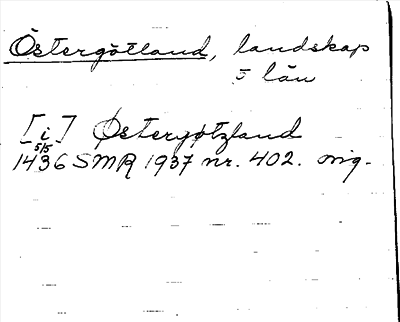 Östergötland, landskap
län
[i] Østergøtzland
5/5
1436 SMR 1937 nr. 402. orig.